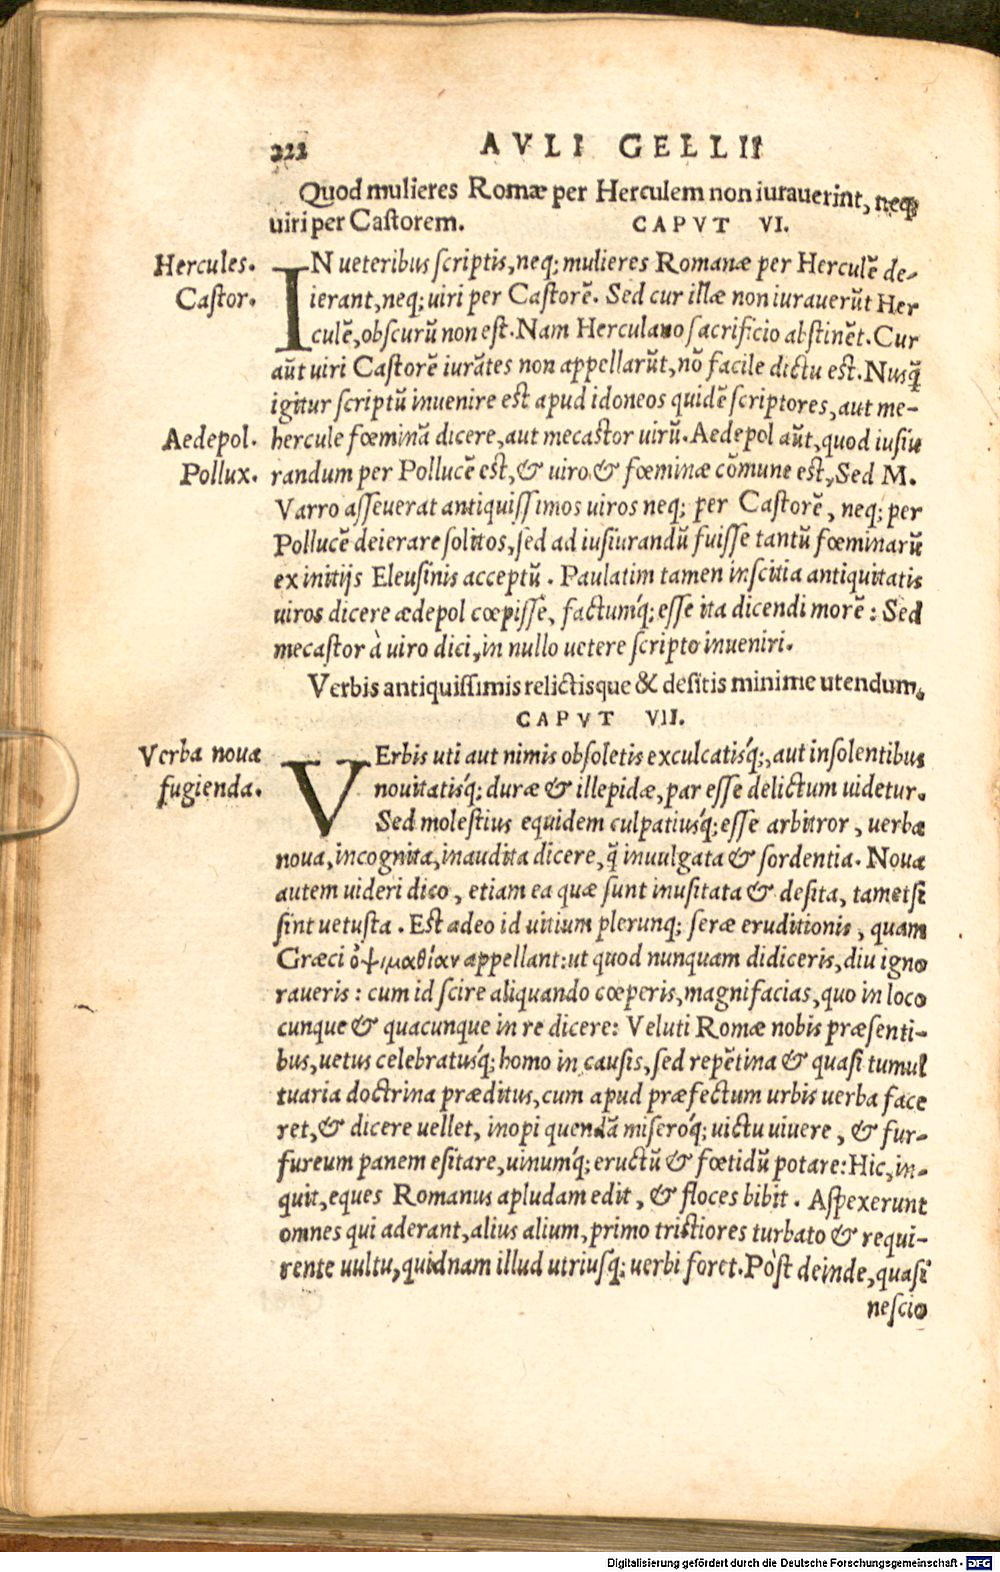 222 AVLI GELLII
Quod mulieres Romæ per Herculem non iurauerint, neq;
uiri per Castorem. CAPVT VI.
Hercules.
Castor.
IN ueteribus scriptis, neq; mulieres Romanæ per Herculẽ de-
ierant, neq; uiri per Castorẽ. Sed cur illæ non iurauerũt Her
culẽ, obscurũ non est. Nam Herculano sacrificio abstinẽt. Cur
aũt uiri Castorẽ iurãtes non appellarũt, nõ facile dictu est. Nusq̃
igitur scriptũ inuenire est apud idoneos quidẽ scriptores, aut me-
Aedepol.
Pollux.
hercule fœminã dicere, aut mecastor uirũ. Aedepol aũt, quod iusiu
randum per Pollucẽ est, & uiro & fœminæ cõmune est, Sed M.
Varro asseuerat antiquissimos uiros neq; per Castorẽ, neq; per
Pollucẽ deierare solitos, sed ad iusiurandũ fuisse tantũ fœminarũ
ex initijs Eleusinis acceptũ. Paulatim tamen inscitia antiquitatis
uiros dicere ædepol cœpisse, factumq́; esse ita dicendi morẽ: Sed
mecastor à uiro dici, in nullo uetere scripto inueniri.
Verbis antiquissimis relictisque & desitis minime utendum.
CAPVT VII.
Verba noua
fugienda.
VErbis uti aut nimis obsoletis exculcatisq́;, aut insolentibus
nouitatisq́; duræ & illepidæ, par esse delictum uidetur.
Sed molestius equidem culpatiusq́; esse arbitror, uerba
noua, incognita, inaudita dicere, q̃ inuulgata & sordentia. Noua
autem uideri dico, etiam ea quæ sunt inusitata & desita, tametsi
sint uetusta. Est adeo id uitium plerunq; seræ eruditionis, quam
Græci ὀψιμαθίαν appellant: ut quod nunquam didiceris, diu igno
raueris: cum id scire aliquando cœperis, magnifacias, quo in loco
cunque & quacunque in re dicere: Veluti Romæ nobis præsenti-
bus, uetus celebratusq́; homo in causis, sed repẽtina & quasi tumul
tuaria doctrina præditus, cum apud præfectum urbis uerba face
ret, & dicere uellet, inopi quendã miseróq; uictu uiuere, & fur-
fureum panem esitare, uinumq́; eructũ & fœtidũ potare: Hic, in-
quit, eques Romanus apludam edit, & floces bibit. Aspexerunt
omnes qui aderant, alius alium, primo tristiores turbato & requi-
rente uultu, quidnam illud utriusq; uerbi foret. Pòst deinde, quasi
nescio
Digitalisierung gefördert durch die Deutsche Forschungsgemeinschaft - DFG